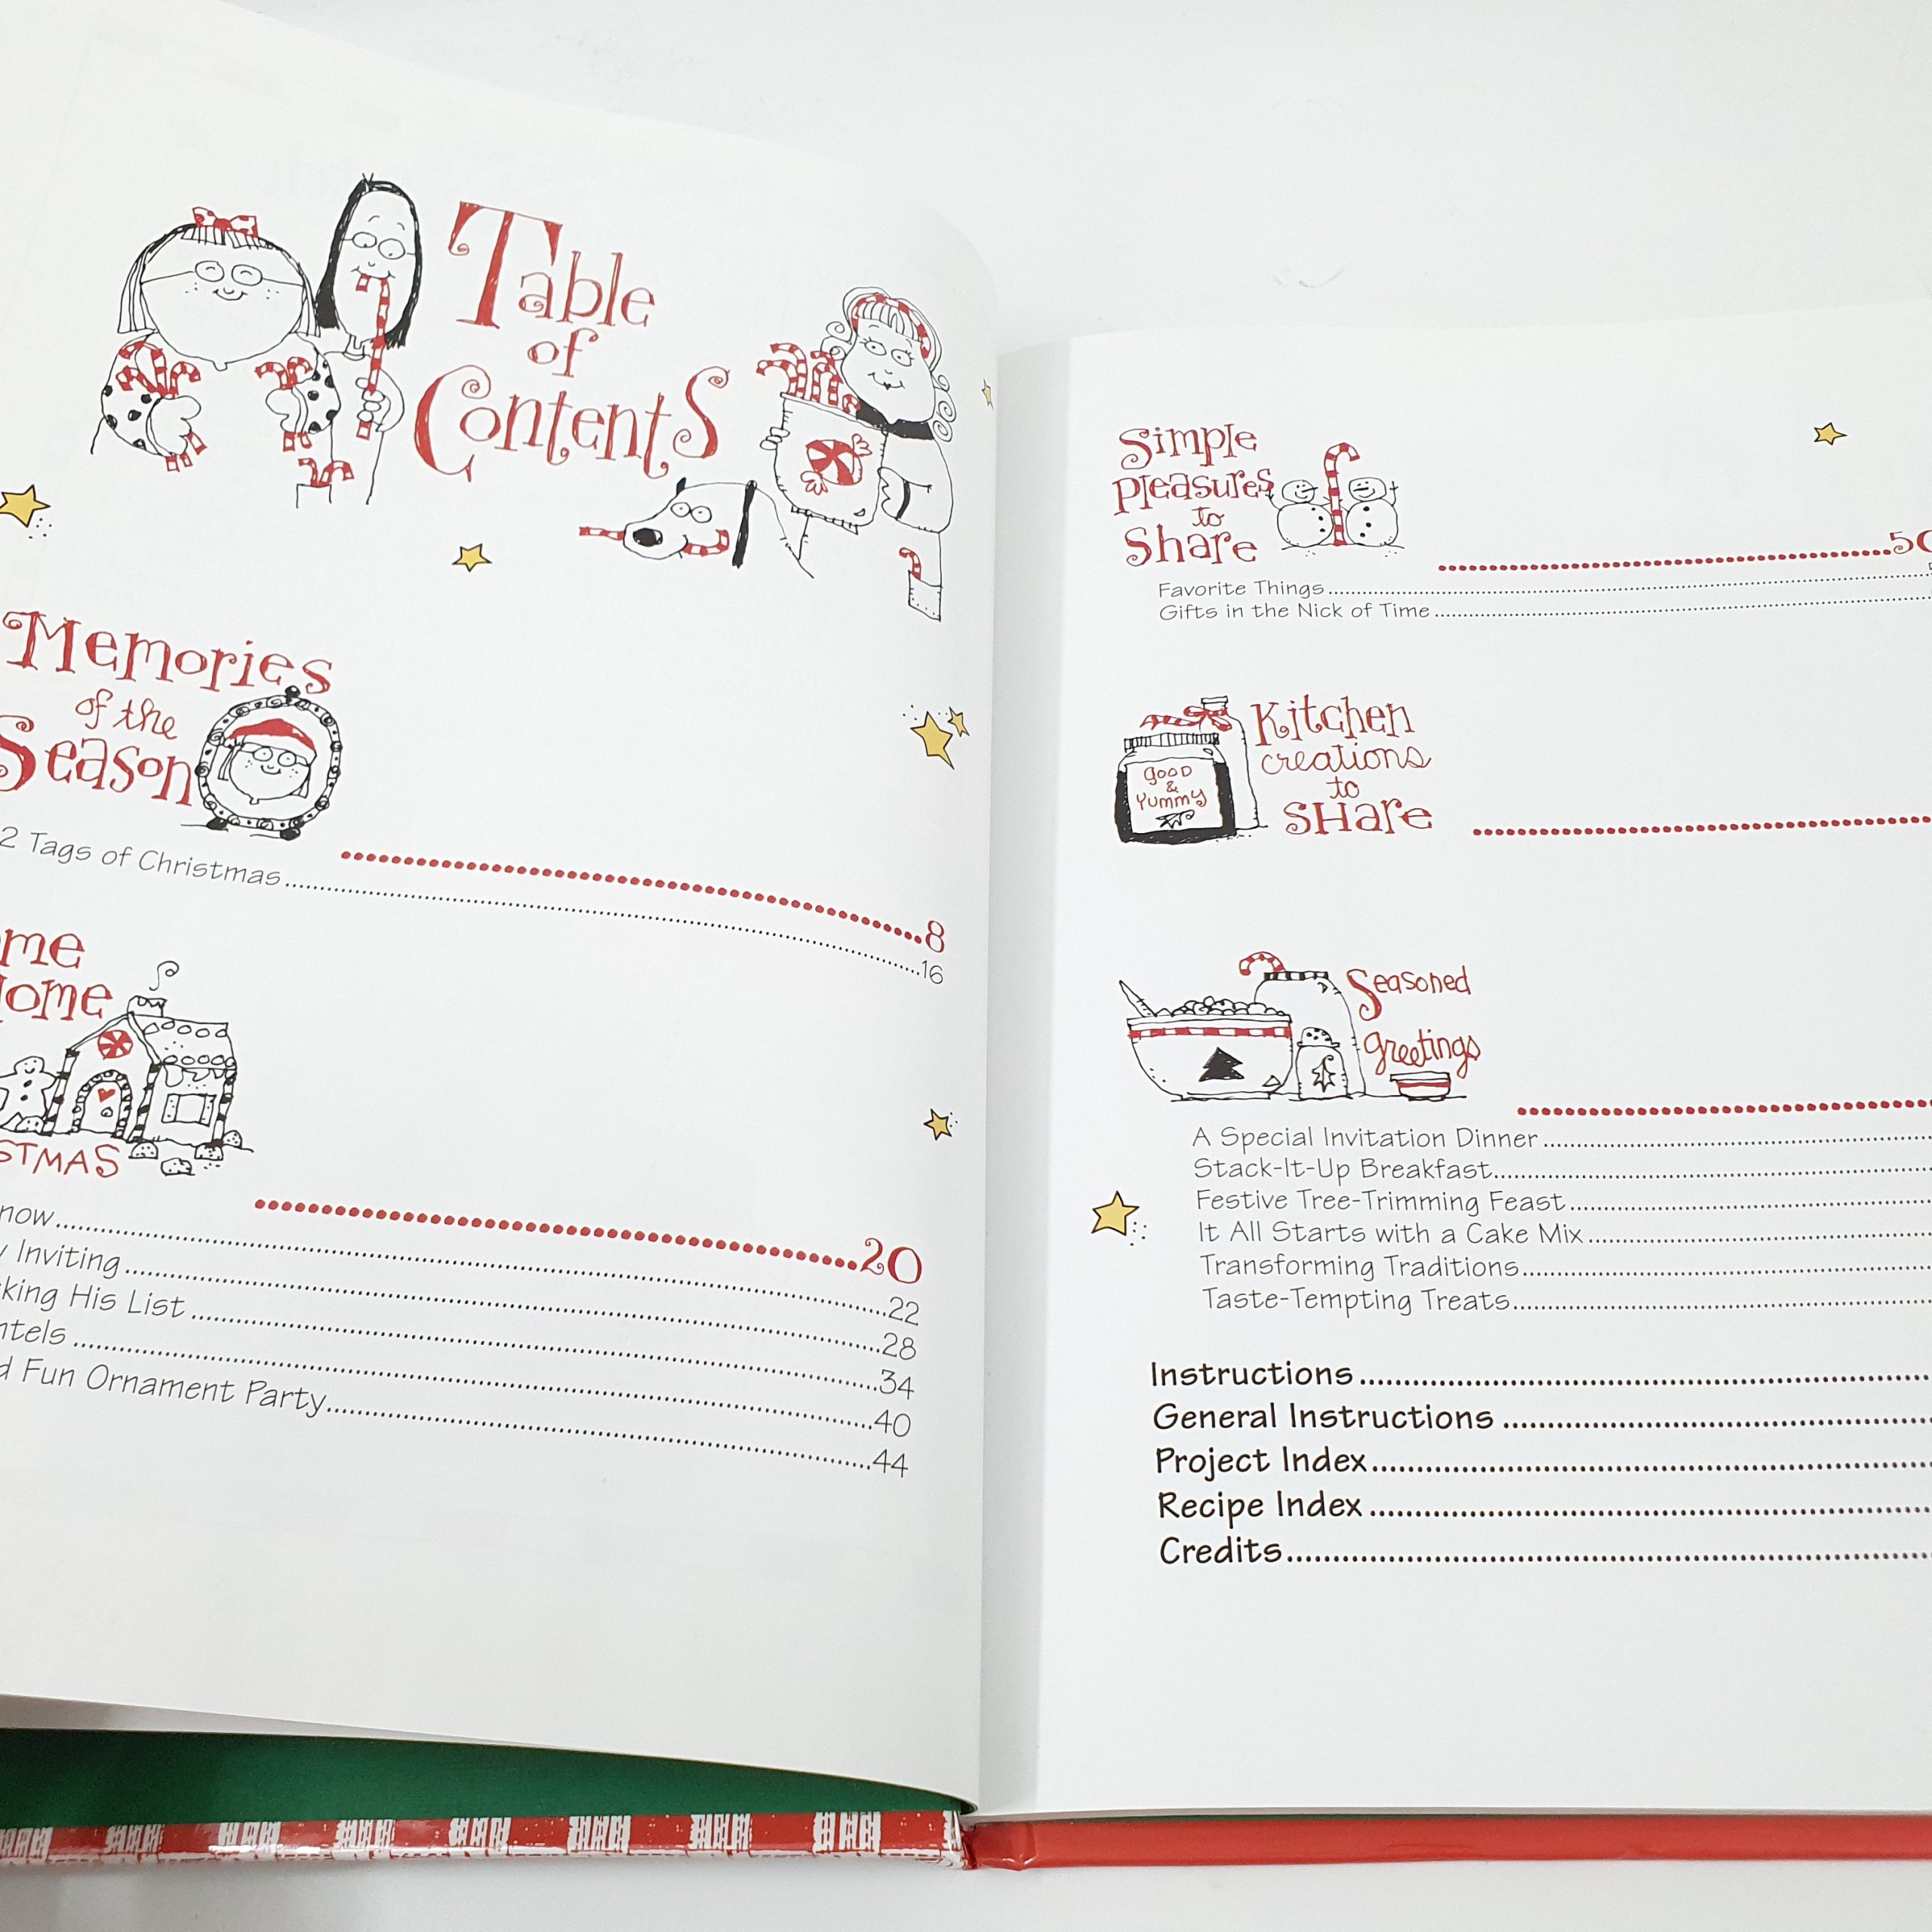 Table
of
Contents
Memories
of the
Season
........8
2 Tags of Christmas........16
........20
........22
Inviting........28
His List........34
........40
Fun Ornament Party........44
Simple
Pleasures
to
Share
........50
Favorite Things........
Gifts in the Nick of Time........
Good
&
Yummy
Kitchen
creations
to
SHare
Seasoned
Greetings
A Special Invitation Dinner........
Stack-It-Up Breakfast........
Festive Tree-Trimming Feast........
It All Starts with a Cake Mix........
Transforming Traditions........
Taste-Tempting Treats........
Instructions........
General Instructions........
Project Index........
Recipe Index........
Credits........